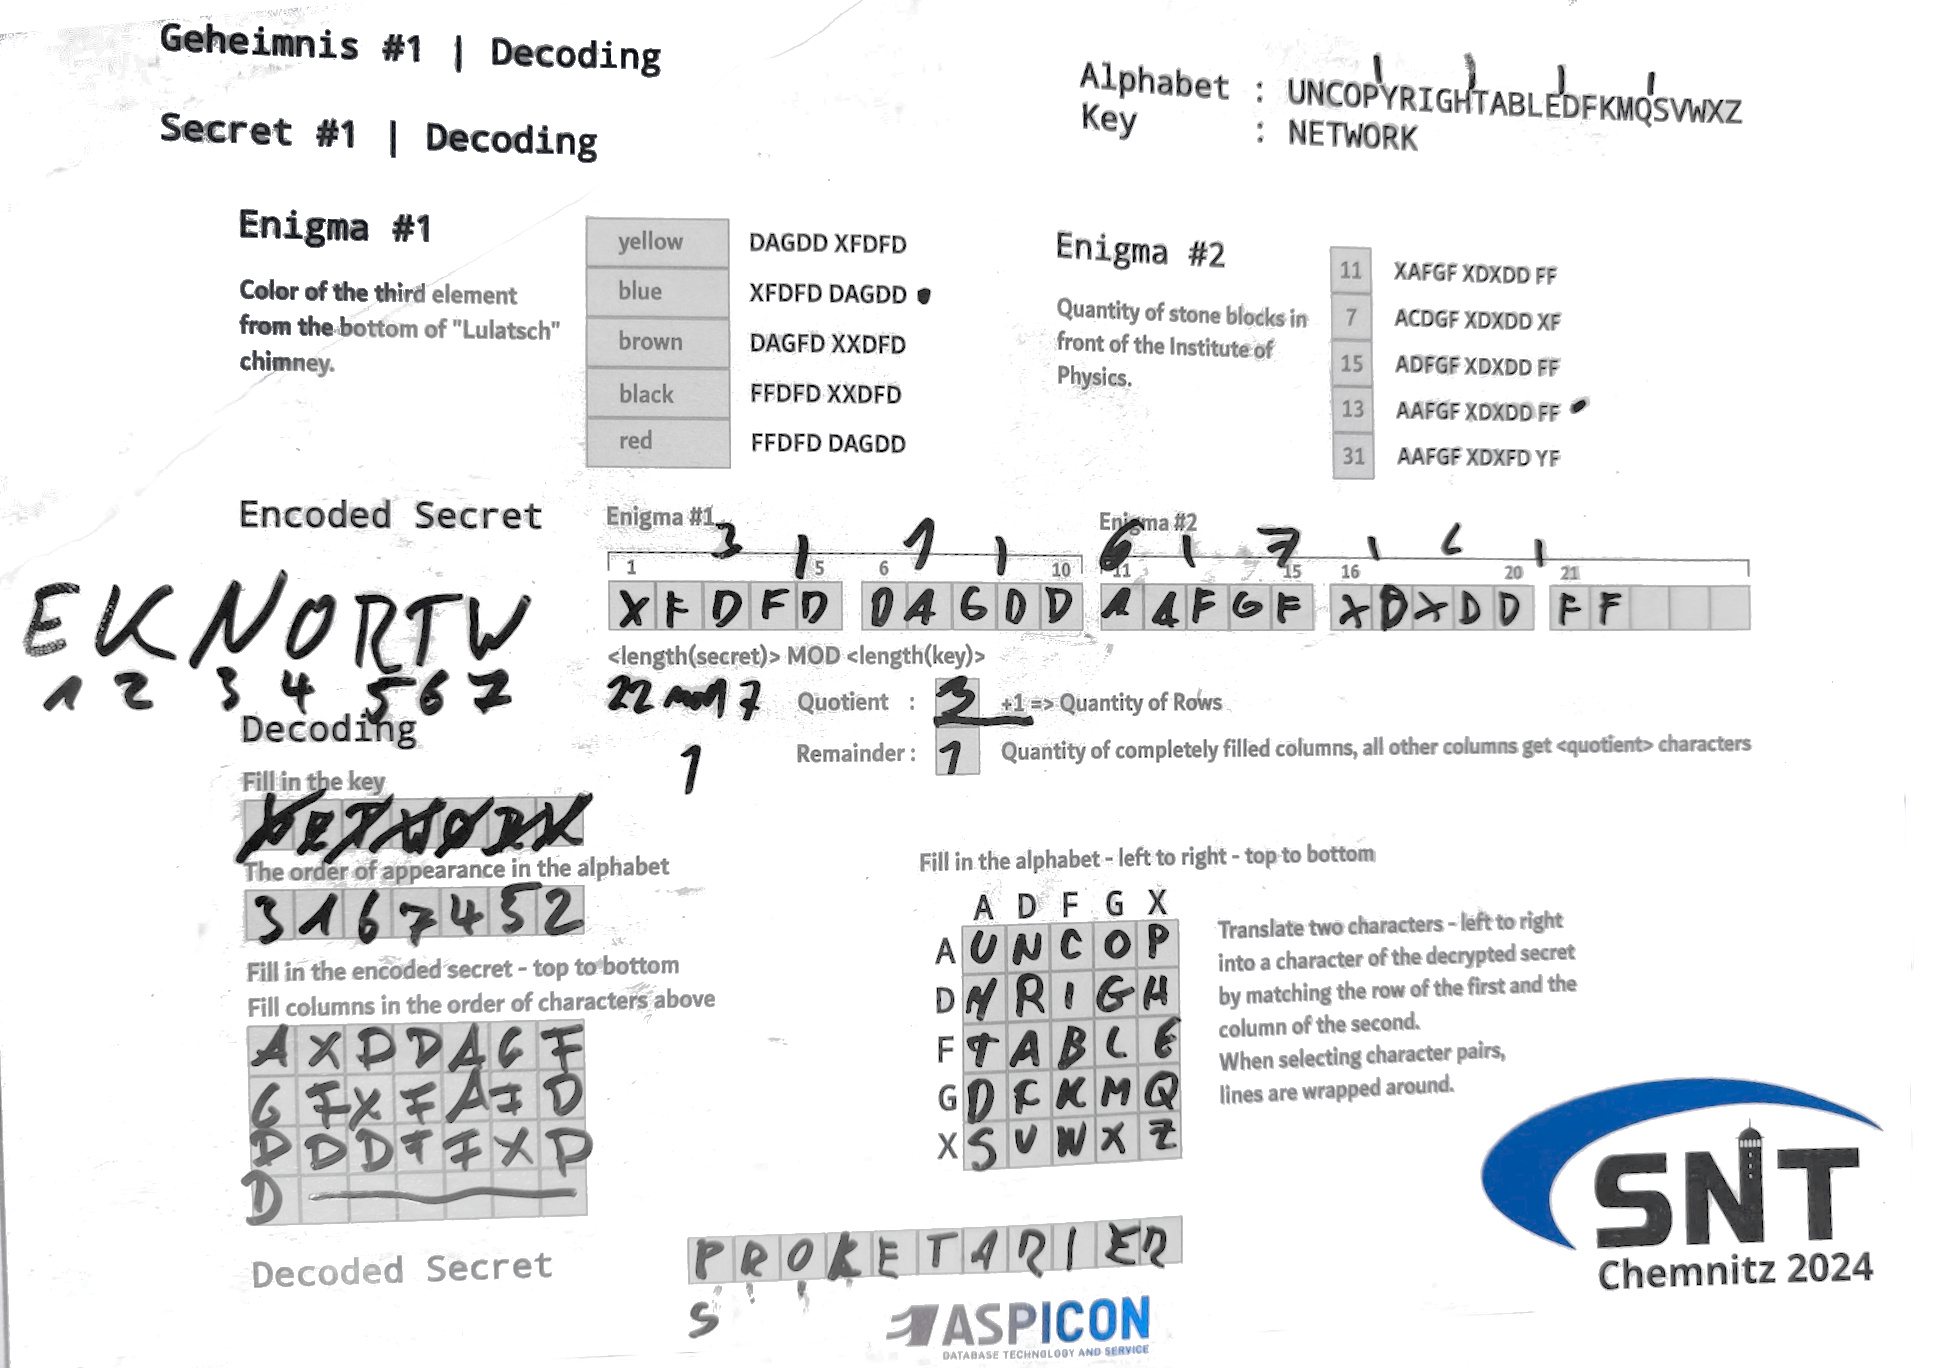 Geheimnis #1 | Decoding
Secret #1 | Decoding
Alphabet : UNCOPYRIGHTABLEDFKMQSVWXZ
Key : NETWORK
Enigma #1
Color of the third element
from the bottom of "Lulatsch"
chimney.
yellow DAGDD XFDFD
blue XFDFD DAGDD
brown DAGFD XXDFD
black FFDFD XXDFD
red FFDFD DAGDD
Enigma #2
Quantity of stone blocks in
front of the Institute of
Physics.
11 XAFGF XDXDD FF
7 ACDGF XDXDD XF
15 ADFGF XDXDD FF
13 AAFGF XDXDD FF
31 AAFGF XDXFD YF
Encoded Secret
Enigma #1 Enigma #2
3 1 6 7 6
1 5 6 10 11 15 16 20 21
X F D F D D A G D D A A F G F X D X D D F F
E K N O R T W
1 2 3 4 5 6 7
<length(secret)> MOD <length(key)>
22 mod 7
1
Quotient : 3 +1 => Quantity of Rows
Remainder : 1 Quantity of completely filled columns, all other columns get <quotient> characters
Decoding
Fill in the key
N E T W O R K
The order of appearance in the alphabet
3 1 6 7 4 5 2
Fill in the encoded secret - top to bottom
Fill columns in the order of characters above
A X D D A G F
G F X F A F D
D D D F F X D
D
Fill in the alphabet - left to right - top to bottom
A D F G X
A U N C O P
D Y R I G H
F T A B L E
G D F K M Q
X S V W X Z
Translate two characters - left to right
into a character of the decrypted secret
by matching the row of the first and the
column of the second.
When selecting character pairs,
lines are wrapped around.
Decoded Secret
P R O K E T A R I E R
S
ASPICON
DATABASE TECHNOLOGY AND SERVICE
SNT
Chemnitz 2024